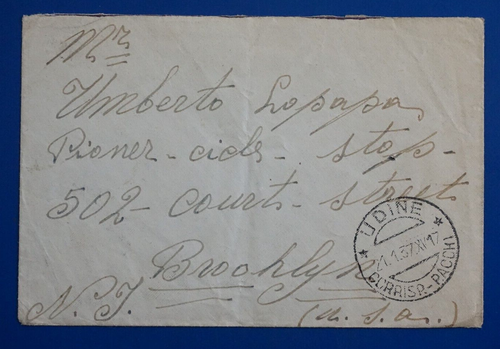 Mr
Umberto Lopapa
Pioner - cicle - stop -
502 - court - street
Brooklyn
N. J. (U. S. A.)
* UDINE *
21.1.37.XV 17
CORRISP.-PACCHI